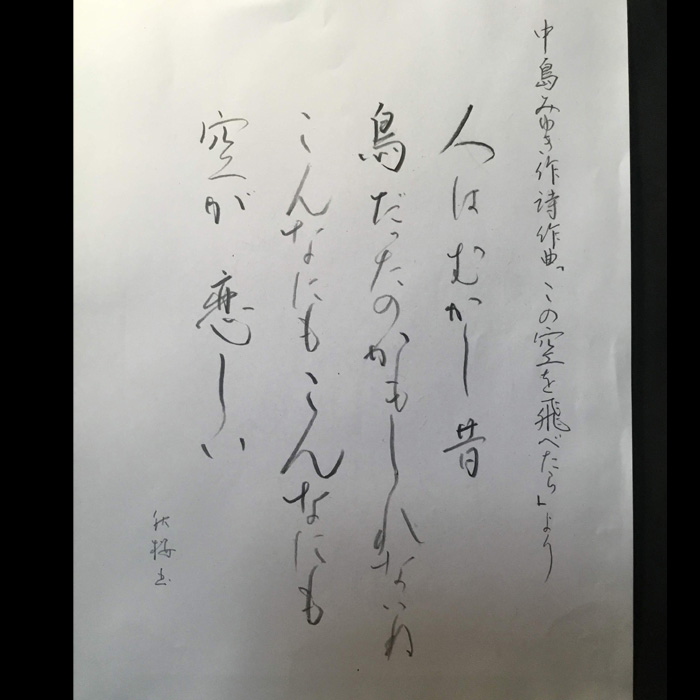 中島みゆき作詩作曲「この空を飛べたら」より
人はむかし昔
鳥だったのかもしれないね
こんなにもこんなにも
空が恋しい
秋桜書